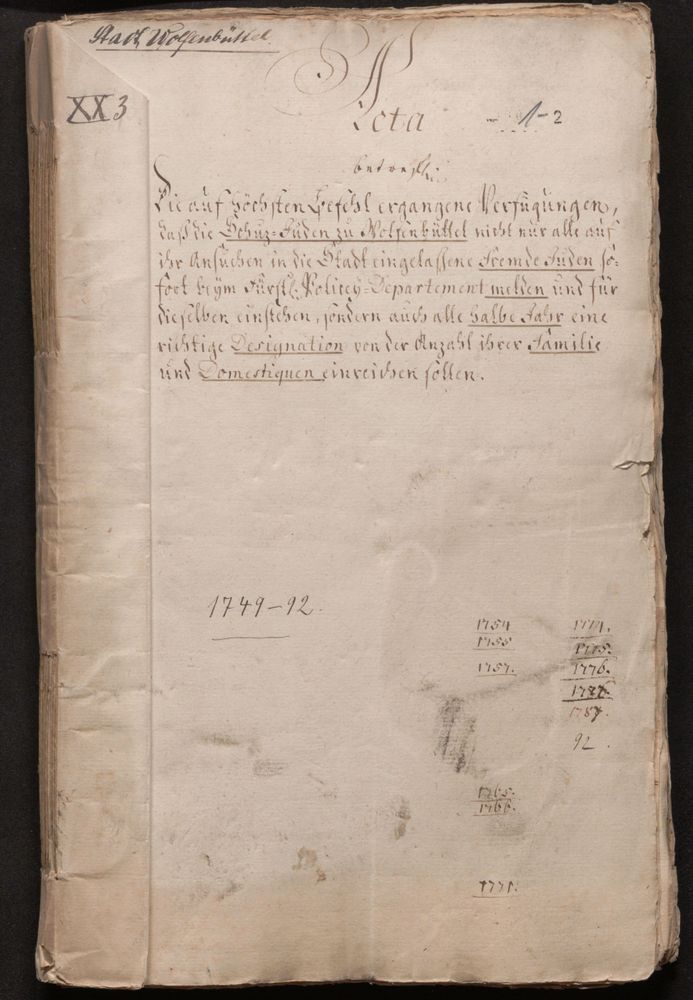 Stadt Wolfenbüttel.
XX 3
Acta
1-2
betreff:
Die auf höchsten Befehl ergangene Verfügungen,
daß die Schuz-Juden zu Wolfenbüttel nicht nur alle auf
ihr Ansuchen in die Stadt eingelassene fremde Juden so-
fort beym Fürstl. Policey-Departement melden und für
dieselben einstehen, sondern auch alle halbe Jahr eine
richtige Designation von der Anzahl ihrer Familie
und Domestiquen einreichen sollen.
1749-92.
1754
1755
1757.
1765.
1766.
1771.
1774.
1775.
1776.
1787.
92.